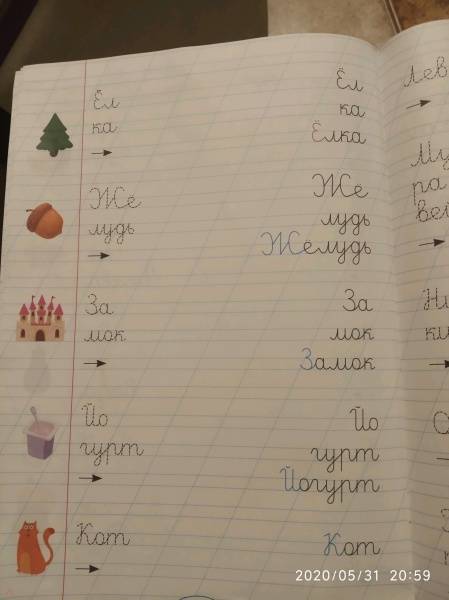 Ёл
ка
Ёл
ка
Ёлка
Же
лудь
Же
лудь
Желудь
За
мок
За
мок
Замок
Йо
гурт
Йо
гурт
Йогурт
Кот
Кот
Лев
Му
ра
вей
2020/05/31 20:59